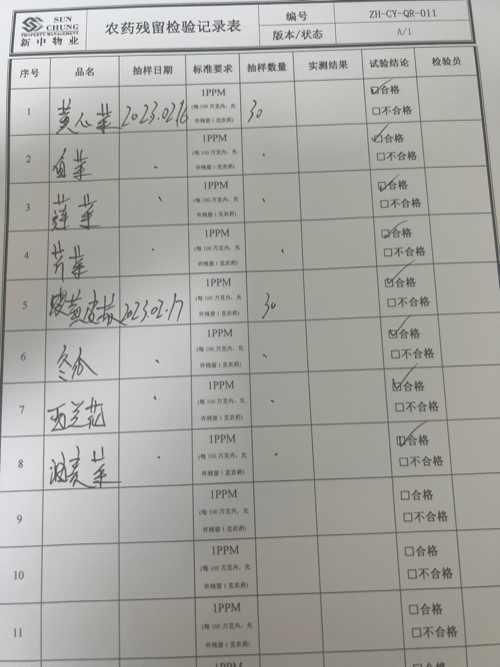 SUN CHUNG
PROPERTY MANAGEMENT
新中物业
农药残留检验记录表
编号 ZH-CY-QR-011
版本/状态 A/1
序号 品名 抽样日期 标准要求 抽样数量 实测结果 试验结论 检验员
1 黄心菜 2023.0216 1PPM 30 ☑合格
(每100万克内，允许残留1克农药) □不合格
2 1PPM ☑合格
(每100万克内，允许残留1克农药) □不合格
3 1PPM ☑合格
(每100万克内，允许残留1克农药) □不合格
4 芹菜 1PPM ☑合格
(每100万克内，允许残留1克农药) □不合格
5 2023.02.17 1PPM 30 ☑合格
(每100万克内，允许残留1克农药) □不合格
6 冬瓜 1PPM ☑合格
(每100万克内，允许残留1克农药) □不合格
7 西兰花 1PPM ☑合格
(每100万克内，允许残留1克农药) □不合格
8 油麦菜 1PPM ☑合格
(每100万克内，允许残留1克农药) □不合格
9 1PPM □合格
(每100万克内，允许残留1克农药) □不合格
10 1PPM □合格
(每100万克内，允许残留1克农药) □不合格
11 1PPM □合格
(每100万克内，允许残留1克农药) □不合格
1PPM □合格